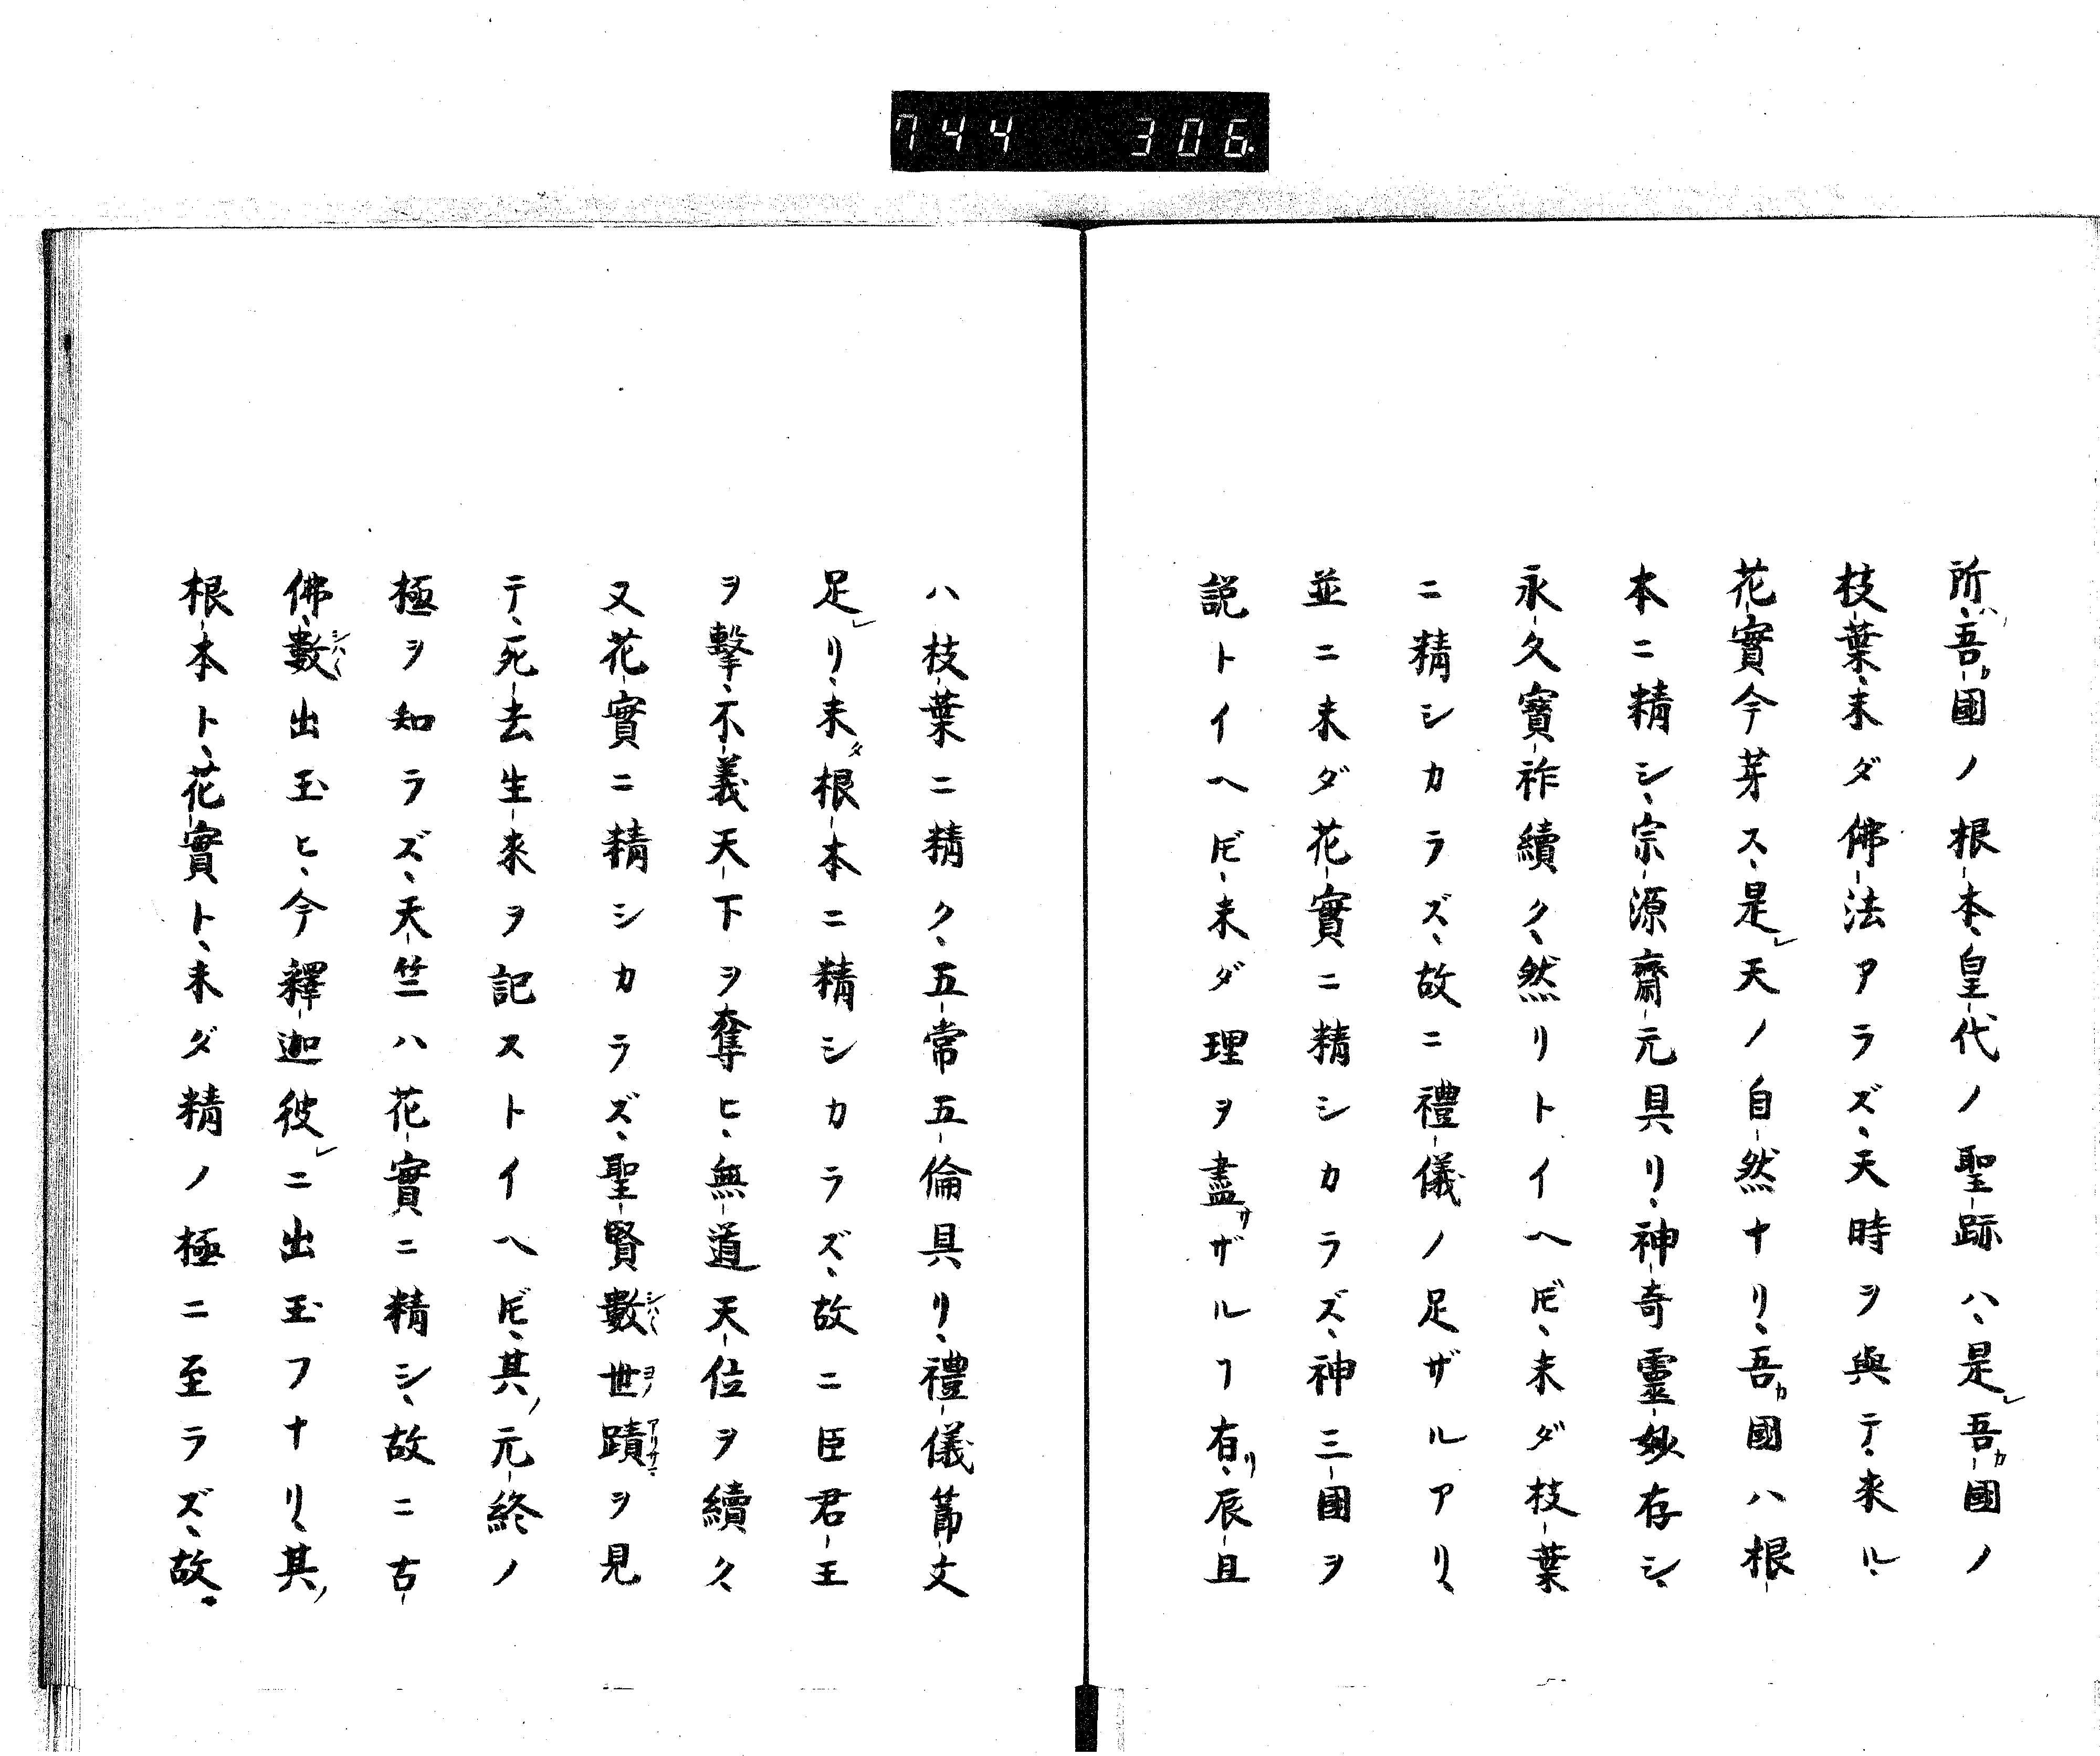 744 306.
所ハ、吾カ國ノ根本、皇代ノ聖跡ハ、是レ吾カ國ノ
枝葉、未ダ佛法アラズ、天時ヲ與テ、來ル、
花實今芽ス、是レ天ノ自然ナリ、吾カ國ハ根
本ニ精シ、宗源齋元具リ、神奇靈妙存シ、
永久寳祚續ク、然リトイヘ𪜈、未ダ枝葉
ニ精シカラズ、故ニ禮儀ノ足ザルアリ、
並ニ未ダ花實ニ精シカラズ、神三國ヲ
説トイヘ𪜈、未ダ理ヲ盡サザルヿ有リ、辰旦
ハ枝葉ニ精ク、五常五倫具リ、禮儀節文
足レリ、未タ根本ニ精シカラズ、故ニ臣君王
ヲ擊、不義天下ヲ奪ヒ、無道天位ヲ續ク
又花實ニ精シカラズ、聖賢數シハ〱世ヨノ蹟アリサマヲ見
テ、死去生來ヲ記ストイヘ𪜈、其ノ元終ノ
極ヲ知ラズ、天竺ハ花實ニ精シ、故ニ古
佛、數シハ〱出玉ヒ、今釋迦彼レニ出玉フナリ、其ノ
根本ト、花實ト、未ダ精ノ極ニ至ラズ、故